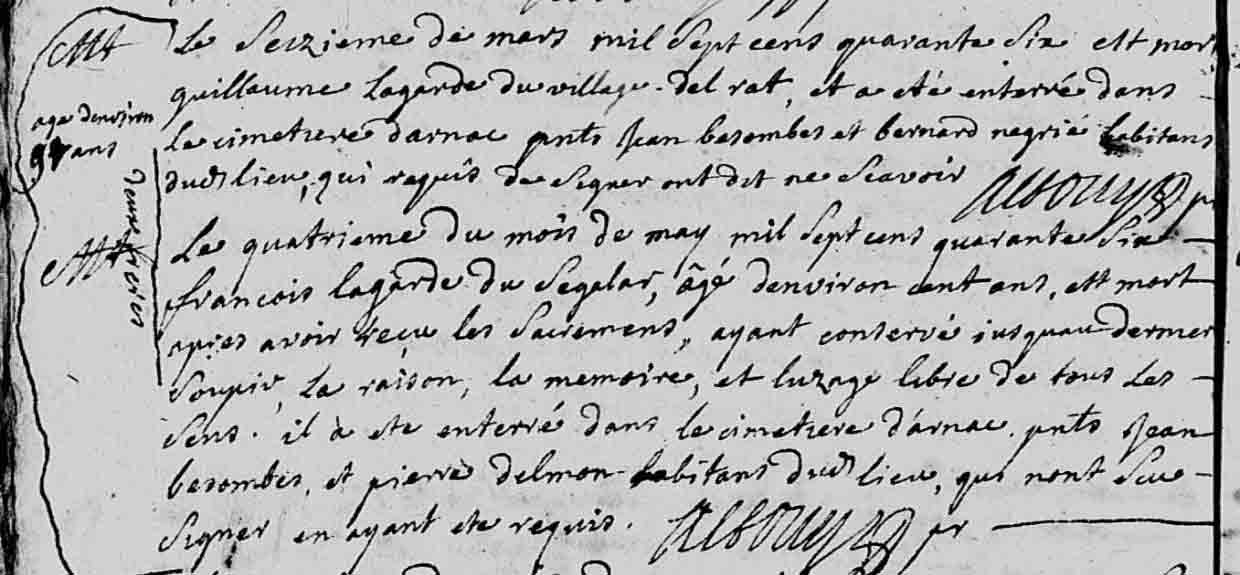 Mtt
age denviron
97 ans
deux freres
Mtt
Le Seizieme de mars mil Sept cens quarante Six est mort
guillaume Lagarde du village del rat, et a eté enterré dans
Le cimetiere darnac pnts Jean besombes et bernard negrié habitans
dud lieu, qui requis de Signer ont dit ne Scavoir Albouy pr
Le quatrieme du mois de may mil Sept cens quarante Six
francois lagarde du Segalar, âgé denviron cent ans, est mort
apres avoir reçu les Sacremens, ayant conservé iusquau dernier
Soupir, La raison, la memoire, et luzage libre de tous Les
Sens. il à ete enterré dans le cimetiere d'arnac. pnts Jean
besombes, et pierre delmon habitans dud lieu, qui nont Scu
Signer en ayant ete requis. Albouy pr